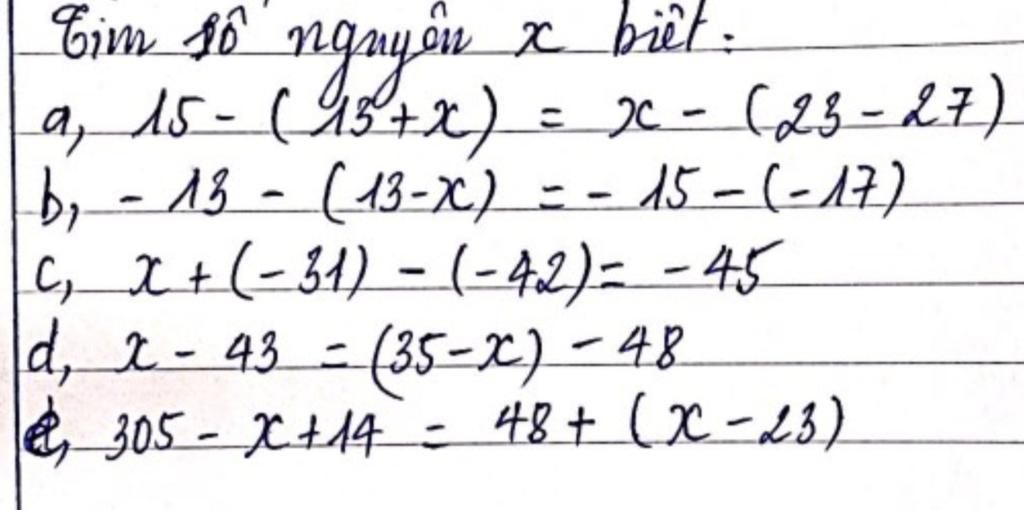 Tìm số nguyên x biết:
a, 15 - (13 + x) = x - (23 - 27)
b, - 13 - (13 - x) = - 15 - (-17)
c, x + (-31) - (-42) = - 45
d, x - 43 = (35 - x) - 48
e, 305 - x + 14 = 48 + (x - 23)